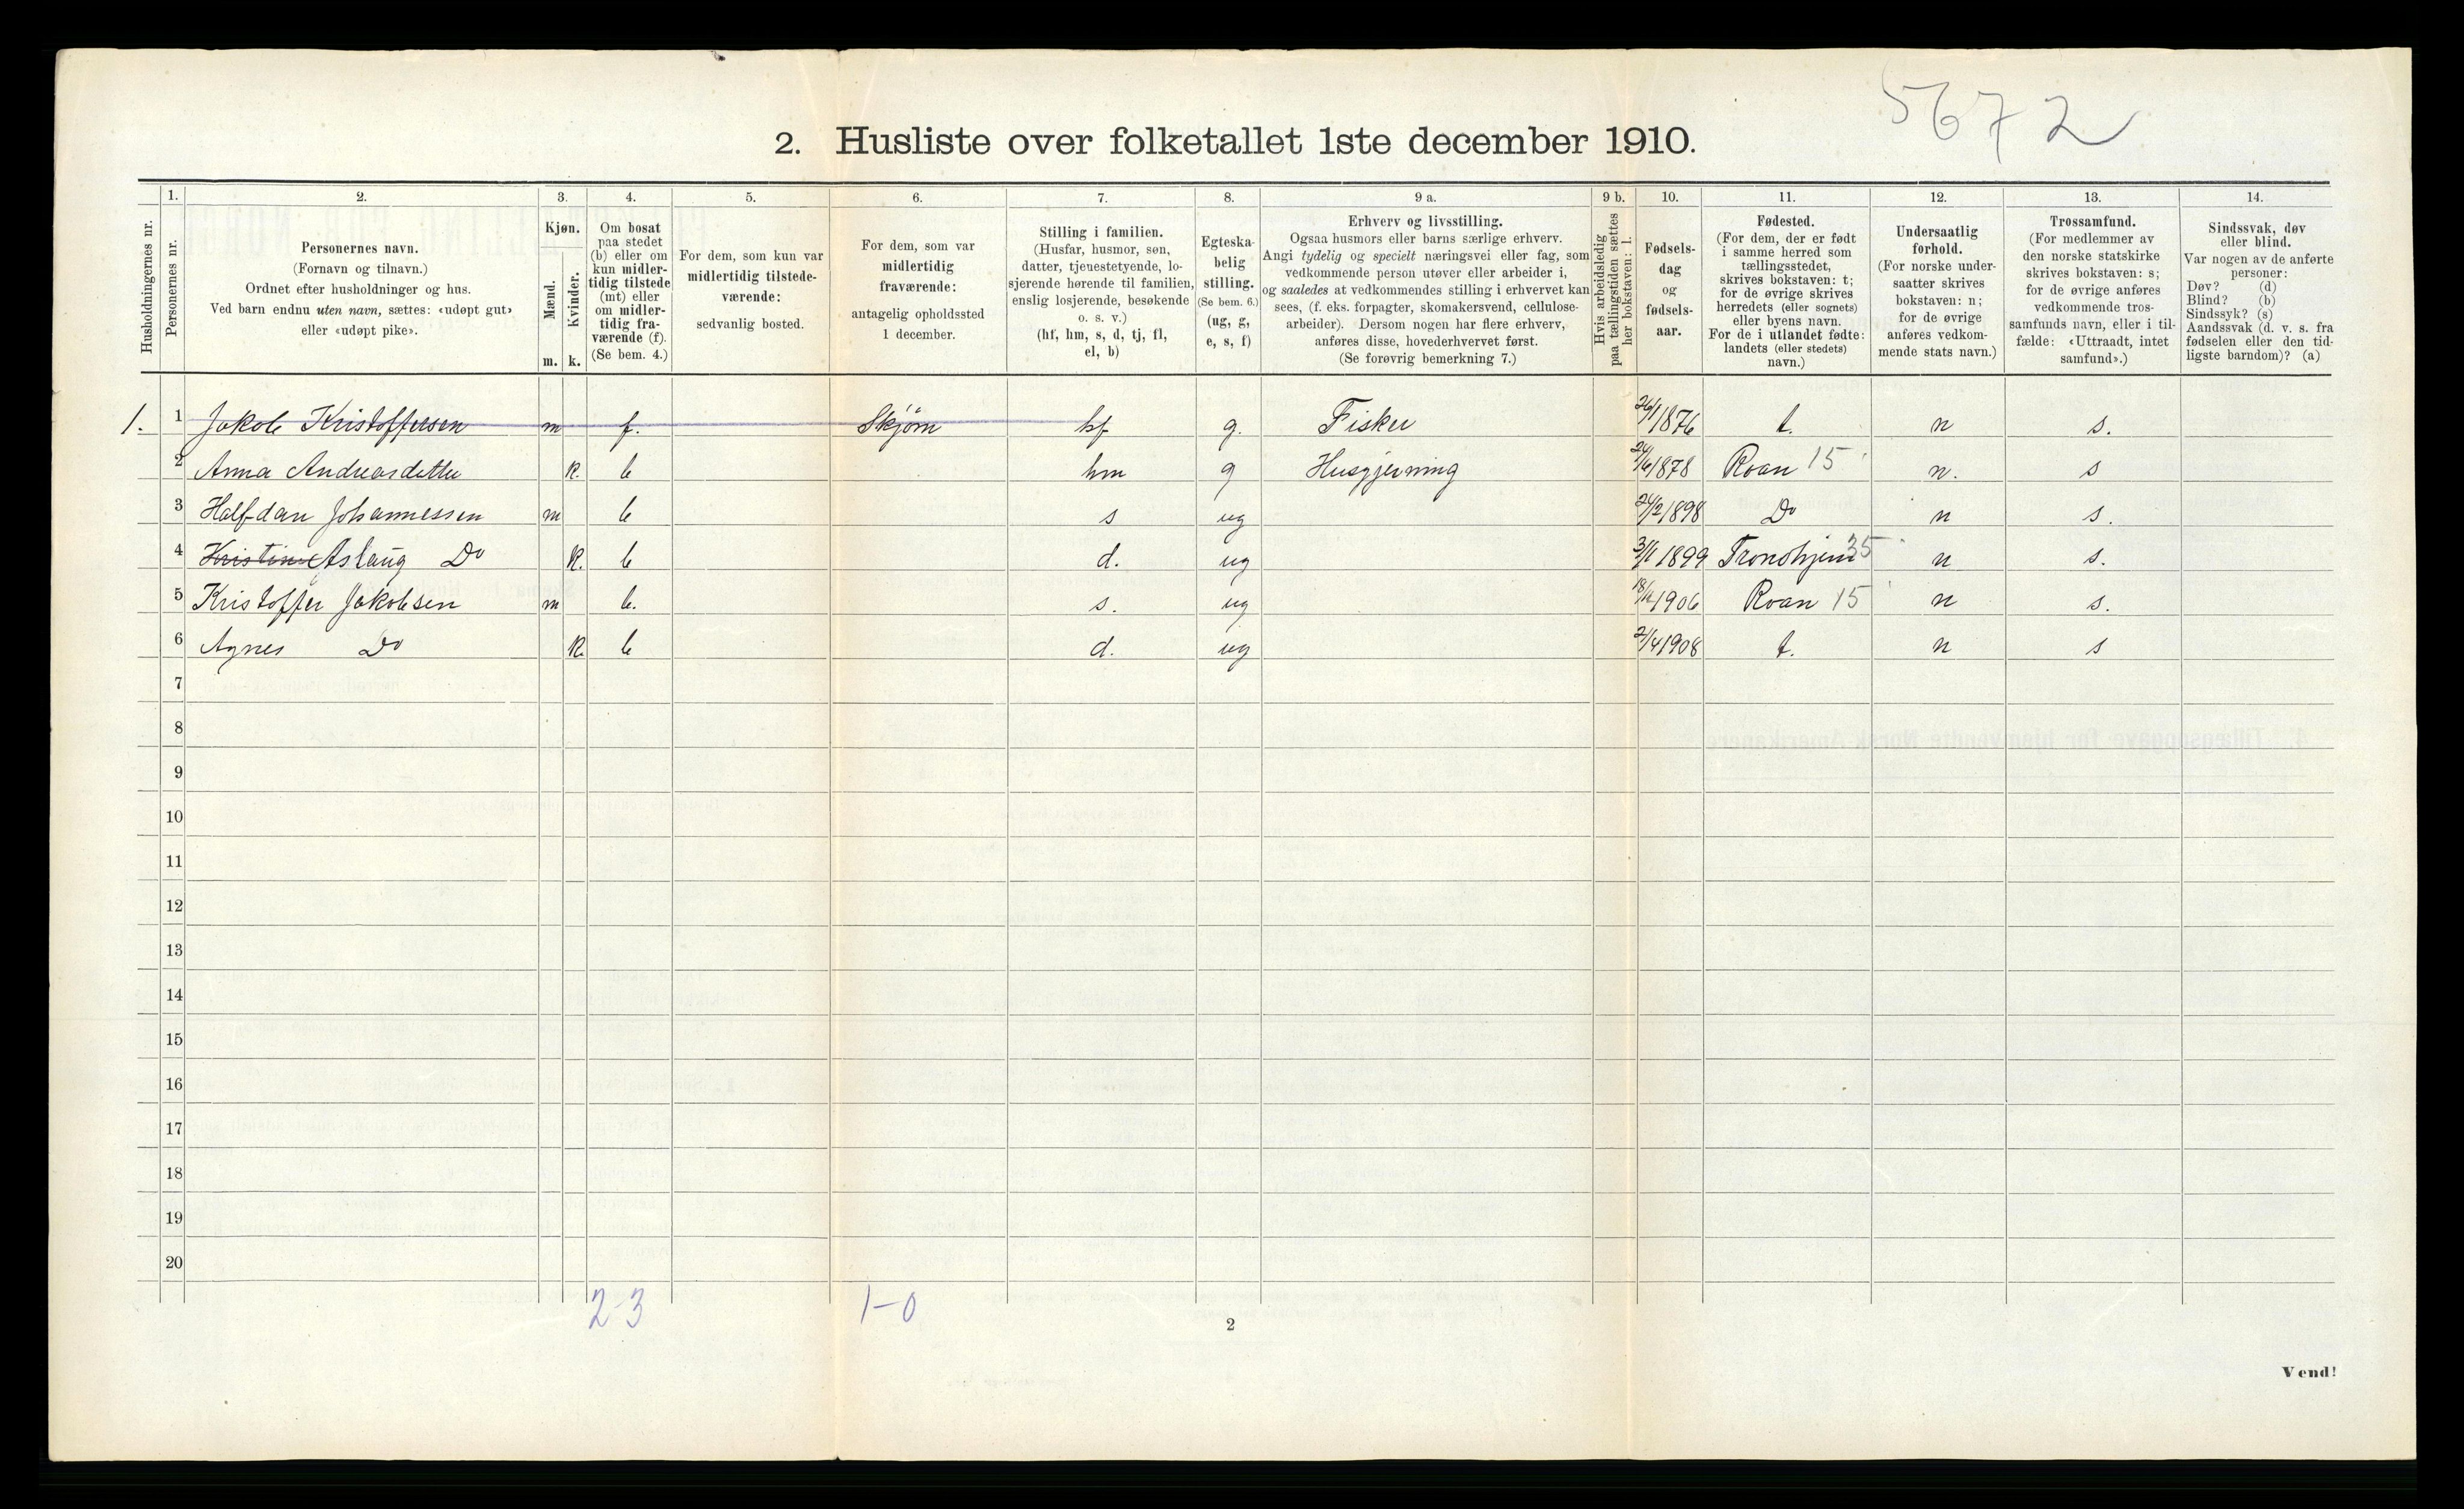 5672
2. Husliste over folketallet 1ste december 1910.
1. 2. 3. 4. 5. 6. 7. 8. 9 a. 9 b. 10. 11. 12. 13. 14.
Husholdningernes nr.
Personernes nr.
Personernes navn.
(Fornavn og tilnavn.)
Ordnet efter husholdninger og hus.
Ved barn endnu uten navn, sættes: «udøpt gut»
eller «udøpt pike».
Kjøn.
Mænd.
Kvinder.
m. k.
Om bosat
paa stedet
(b) eller om
kun midler-
tidig tilstede
(mt) eller
om midler-
tidig fra-
værende (f).
(Se bem. 4.)
For dem, som kun var
midlertidig tilstede-
værende:
sedvanlig bosted.
For dem, som var
midlertidig
fraværende:
antagelig opholdssted
1 december.
Stilling i familien.
(Husfar, husmor, søn,
datter, tjenestetyende, lo-
sjerende hørende til familien,
enslig losjerende, besøkende
o. s. v.)
(hf, hm, s, d, tj, fl,
el, b)
Egteska-
belig
stilling.
(Se bem. 6.)
(ug, g,
e, s, f)
Erhverv og livsstilling.
Ogsaa husmors eller barns særlige erhverv.
Angi tydelig og specielt næringsvei eller fag, som
vedkommende person utøver eller arbeider i,
og saaledes at vedkommendes stilling i erhvervet kan
sees, (f. eks. forpagter, skomakersvend, cellulose-
arbeider). Dersom nogen har flere erhverv,
anføres disse, hovederhvervet først.
(Se forøvrig bemerkning 7.)
Hvis arbeidsledig
paa tællingstiden sættes
her bokstaven: l.
Fødsels-
dag
og
fødsels-
aar.
Fødested.
(For dem, der er født
i samme herred som
tællingsstedet,
skrives bokstaven: t;
for de øvrige skrives
herredets (eller sognets)
eller byens navn.
For de i utlandet fødte:
landets (eller stedets)
navn.)
Undersaatlig
forhold.
(For norske under-
saatter skrives
bokstaven: n;
for de øvrige
anføres vedkom-
mende stats navn.)
Trossamfund.
(For medlemmer av
den norske statskirke
skrives bokstaven: s;
for de øvrige anføres
vedkommende tros-
samfunds navn, eller i til-
fælde: «Uttraadt, intet
samfund».)
Sindssvak, døv
eller blind.
Var nogen av de anførte
personer:
Døv? (d)
Blind? (b)
Sindssyk? (s)
Aandssvak (d. v. s. fra
fødselen eller den tid-
ligste barndom)? (a)
1. 1 Jakob Kristoffersen m f. Skjørn hf g. Fisker 26/1 1876 t. n s.
2 Anna Andreasdatter k. b hm g Husgjerning 24/6 1878 Roan 15 n. s
3 Halfdan Johannessen m b s ug 24/2 1898 Do n s.
4 Kristine Aslaug Do k. b d. ug 3/1 1899 Trondhjem 35 n s.
5 Kristoffer Jakobsen m b. s. ug 18/11 1906 Roan 15 n s.
6 Agnes Do k. b d. ug 2/4 1908 t. n s
7
8
9
10
11
12
13
14
15
16
17
18
19
20
2-3 1-0
2
Vend!